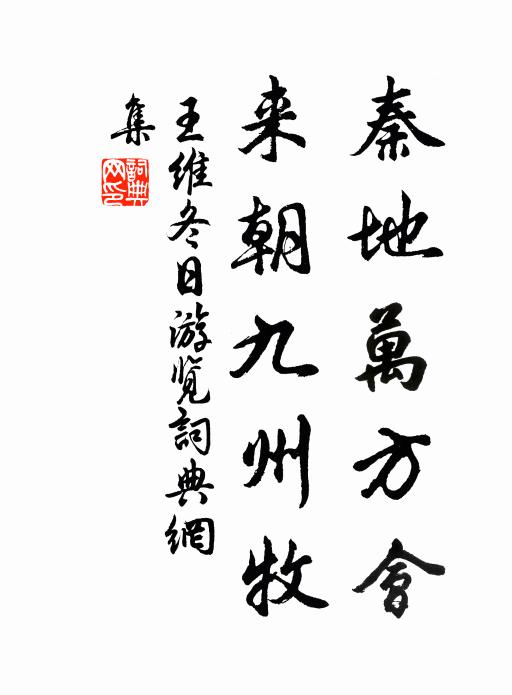 秦地萬方會
来朝九州牧
王维冬日游览詞典網
集
詞典網印